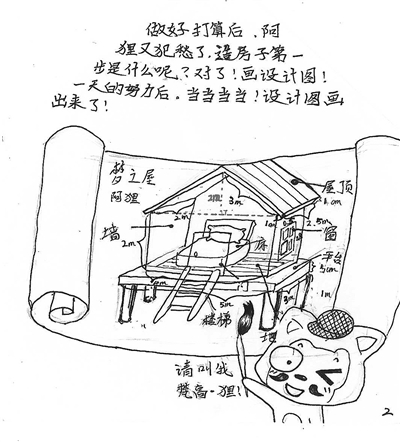 做好打算后,阿
狸又犯愁了,造房子第一
步是什么呢?对了!画设计图!
一天的努力后。当当当当!设计图画
出来了!
梦之屋
阿狸
屋顶
3m
2m
1m
2.5m
墙
窗
2m
床
平台
5cm
门
5m
3m
1m
楼梯
请叫我
梵高·狸!
2